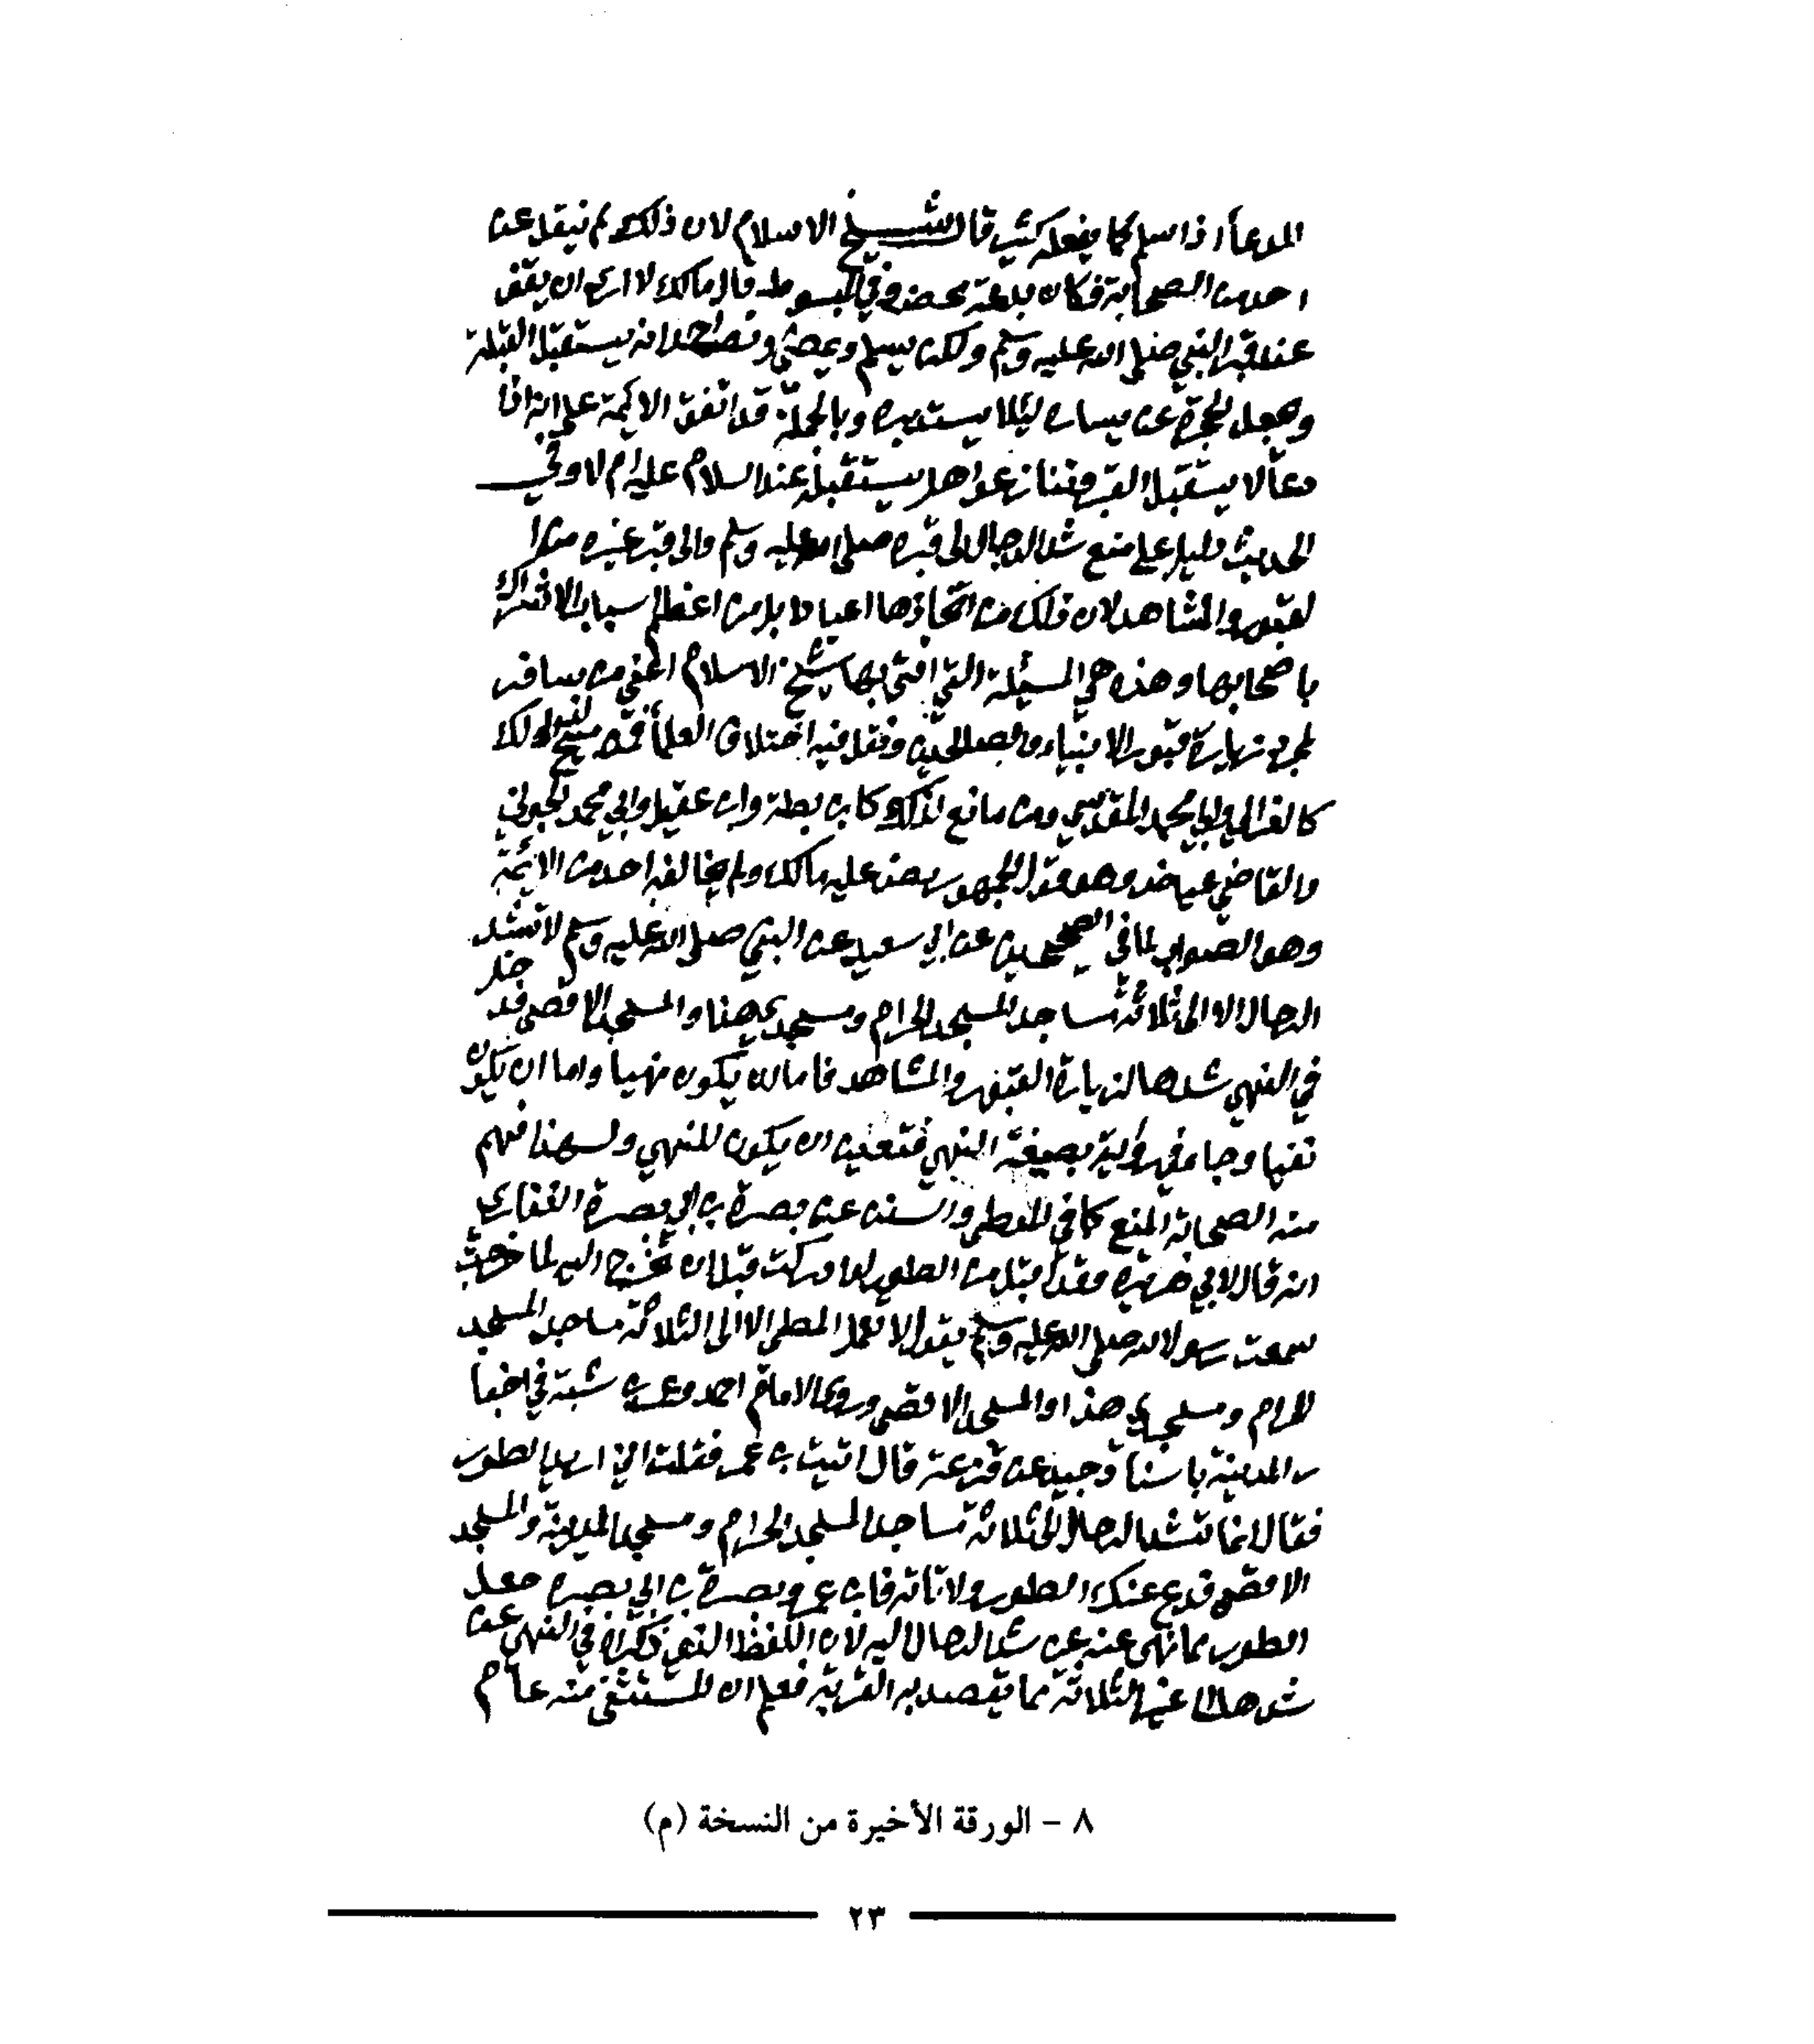 الدعاء اذا سلم كما يفعله كثير قال شيخ الاسلام لان ذلك لم ينقل عن
احد من الصحابة فكان بدعة محضة وفي المبسوط قال مالك لا ارى ان يقف
عند قبر النبي صلى الله عليه وسلم ولكن يسلم ويمضي ونص احمد انه يستقبل القبلة
ويجعل الحجرة عن يساره ليلا يستدبره وبالجملة قد اتفق الائمة على انه اذا
دعا لا يستقبل القبر وتنازعوا هل يستقبله عند السلام عليه ام لا وفي
الحديث دليل على منع شد الرحال الى قبره صلى الله عليه وسلم والى قبر غيره من ا
لقبور والمشاهد لان ذلك من اتخاذها اعيادا بل من اعظم اسباب الاشراك
باصحابها وهذه هي المسئلة التي افتى بها شيخ الاسلام اعني من سافر
لمجرد زيارة قبور الانبياء والصالحين ونقل فيه اختلاف العلما فمن مبيح لذلك
كالغزالي وابي محمد المقدسي ومن مانع لذلك كابن بطة وابن عقيل وابي محمد الجويني
والقاضي عياض وهو قول الجمهور نص عليه مالك ولم يخالفه احد من الائمة
وهو الصواب لما في الصحيحين عن ابي سعيد عن النبي صلى الله عليه وسلم لا تشد
الرحال الا الى ثلاثة مساجد المسجد الحرام ومسجدي هذا والمسجد الاقصى فدخل
في النهي شدها لزيارة القبور والمشاهد فاما ان يكون نهيا واما ان يكون
نفيا وجا في رواية بصيغة النهي فتعين ان يكون للنهي ولهذا فهم
منه الصحابة المنع كما في الموطى والسنن عن بصرة بن ابي بصرة الغفاري
انه قال لابي هريرة وقد اقبل من الطور لو ادركتك قبل ان تخرج اليه لما خرجت
سمعت رسول الله صلى الله عليه وسلم يقول لا تعمل المطي الا الى ثلاثة مساجد المسجد
الحرام ومسجدي هذا والمسجد الاقصى وروى الامام احمد وعمر بن شبة في اخبا
ر المدينة باسناد جيد عن قزعة قال اتيت بن عمر فقلت اني اريد الطور
فقال انما تشد الرحال الى ثلاثة مساجد المسجد الحرام ومسجد المدينة والمسجد
الاقصى فدع عنك الطور ولا تاته فابن عمر وبصرة بن ابي بصرة جعلا
الطور مما نهى عنه عن شد الرحال اليه لان اللفظ الذي ذكراه في النهي عن
شدها الى غير الثلاثة مما يقصد به القربة فعلم ان المستثنى منه عام
٨ - الورقة الأخيرة من النسخة (م)
٢٣